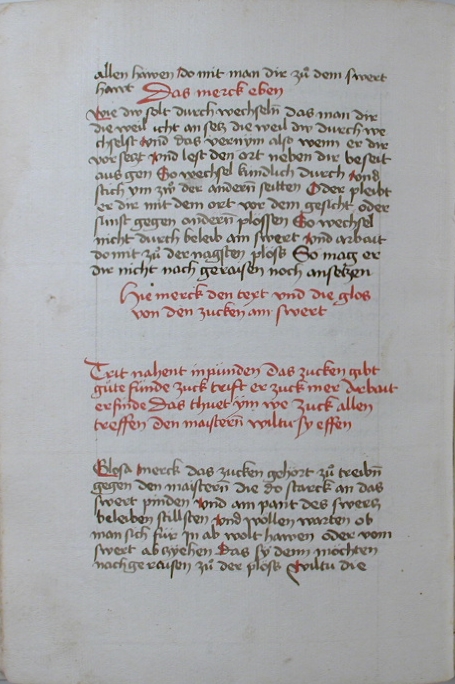 allen häwen do mit man dir zu dem swert
hawt Das merck eben
Wie dw solt durch wechseln das man dir
die weil icht an setz die weil dw durch we
chselst Vnd das vernym also wenn er dir
vor setzt Vnd lest den ort neben dir beseit
aus gen So wechsel kündlich durch Vnd
stich ym zw der andern seitten Oder pleibt
er dir mit dem ort vor dem gesicht oder
sunst gegen andern plossen So wechsel
nicht durch beleib am swert Vnd arbait
do mit zu der nagsten plöss So mag er
dir nicht nach geraisen noch ansetzen
Hie merck den text vnd die glos
von den zucken am swert
Trit nahent in pünden das zucken gibt
güte fünde zuck trift er zuck mer Arbait
erfinde Das thuet ym we Zuck allen
treffen den maistern wiltu sy effen
Glosa merck das zucken gehort zu treibn
gegen den maistern die do starck an das
swert pinden Vnd am pant des swercz
beleiben stillsten Vnd wollen warten ob
man sich für in ab wolt hawen oder vom
swert ab zyehen Das sy denn möchten
nachgeraisen zu der plöss Wiltu die